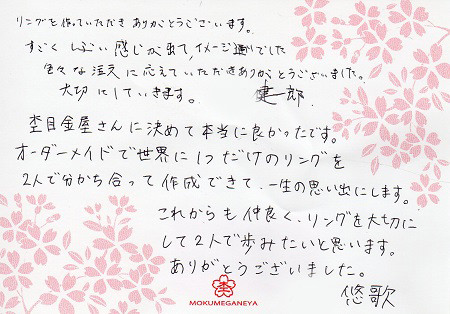 リングを作っていただきありがとうございます。
すごくしぶい感じが出て、イメージ通りでした
色々な注文に応えていただきありがとうございました。
大切にしていきます。 健一郎.
杢目金屋さんに決めて本当に良かったです。
オーダーメイドで世界に1つだけのリングを
2人で分かち合って作成できて、一生の思い出にします。
これからも仲良く、リングを大切に
して2人で歩みたいと思います。
ありがとうございました。
悠歌
MOKUMEGANEYA